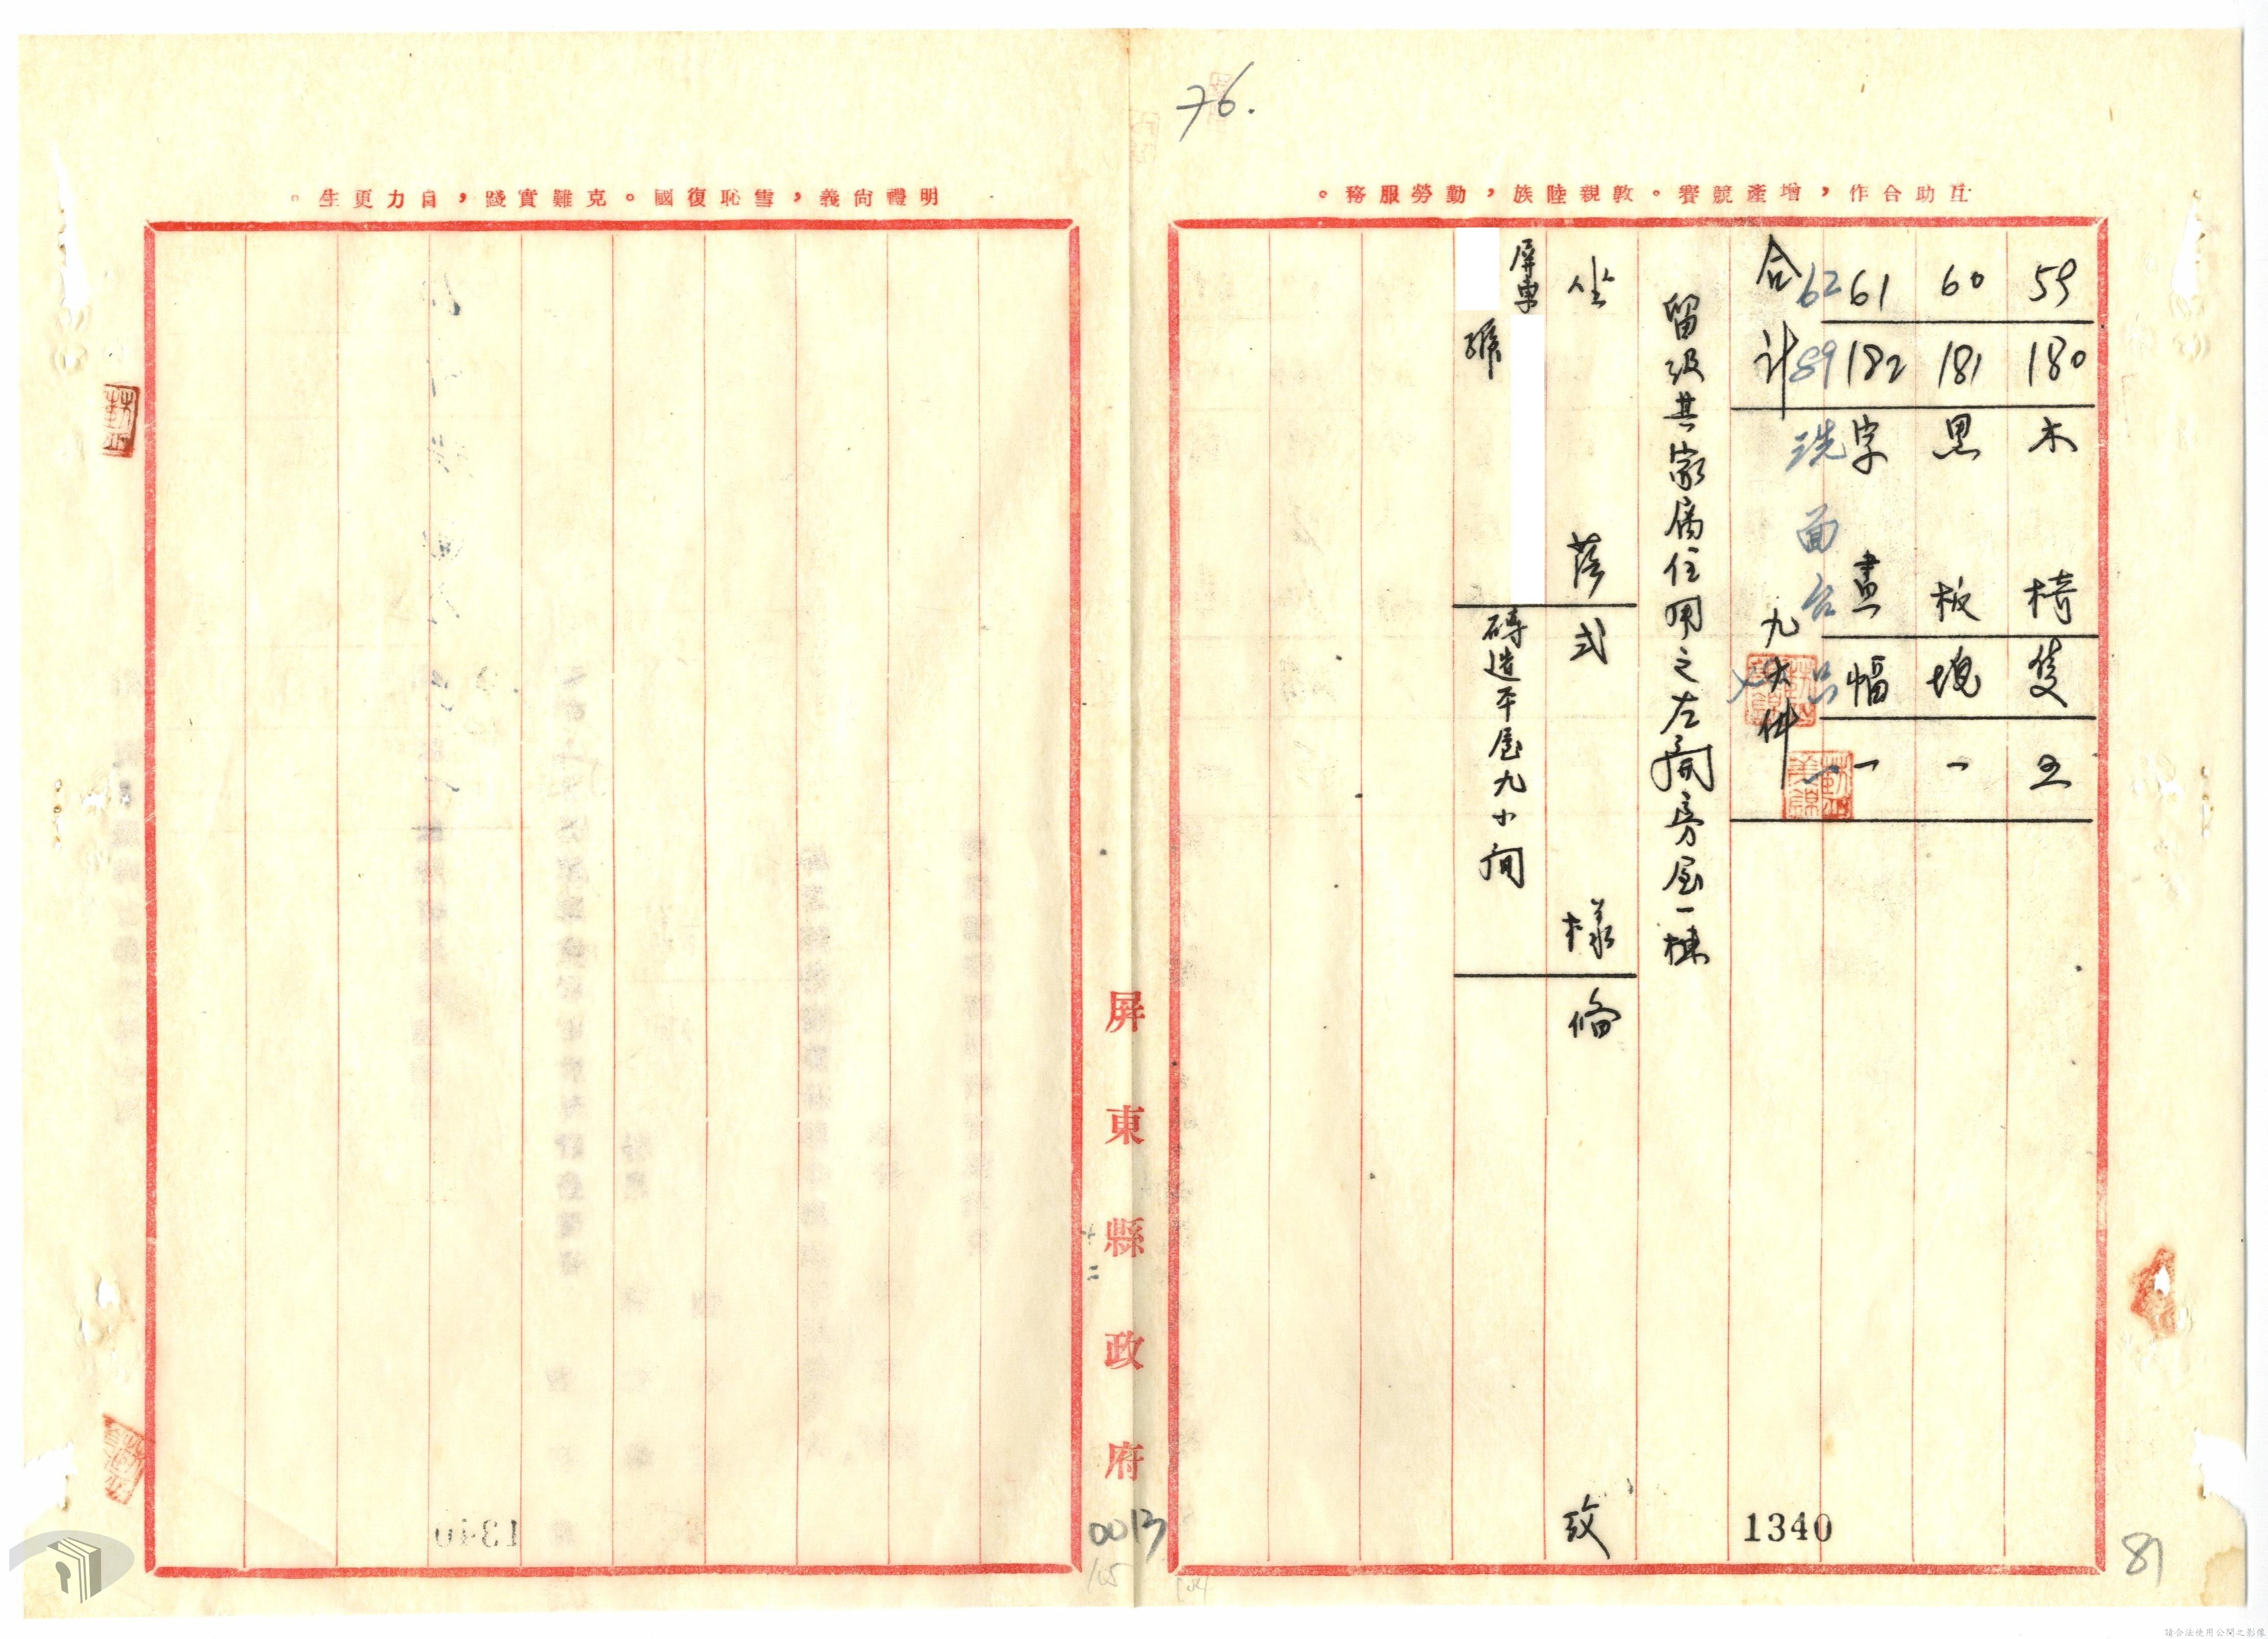 76.
互助合作，增產競賽。敦親睦族，勤勞服務。
59 180 木椅 隻 五
60 181 黑板 塊 一
61 182 字畫 幅 一
62 89 洗面台 一
合計 九大件
留級其家屬住用之左開房屋一棟
坐落 式樣 備攷
屏東
號 磚造平屋九小間
1340
81
屏東縣政府
十二
0013
明禮尚義，雪恥復國。克難實踐，自力更生。
請合法使用公開之影像